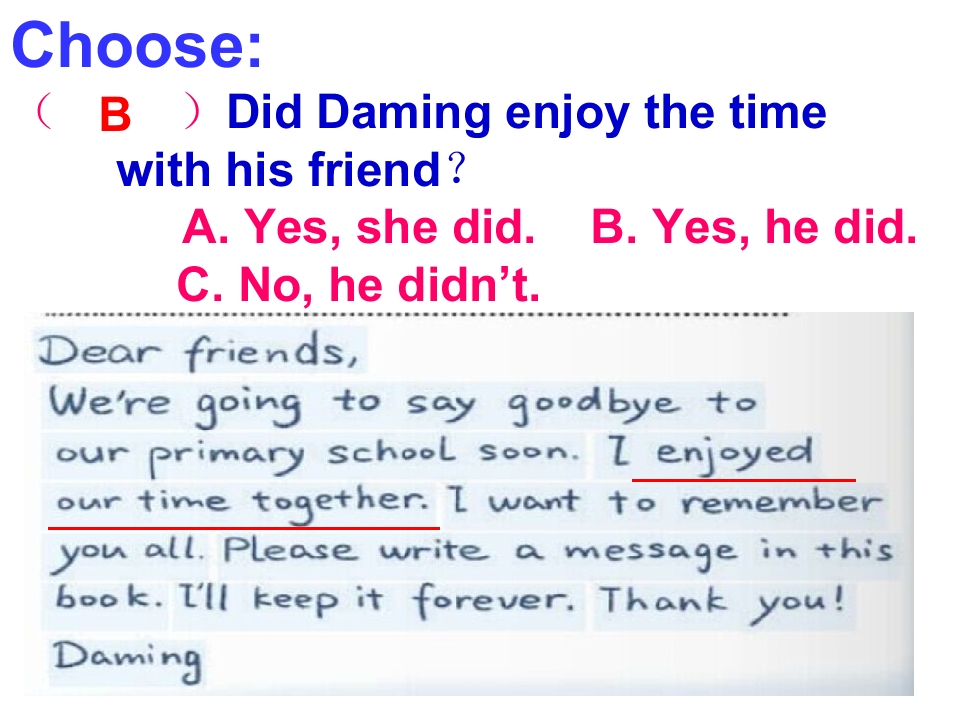 Choose:
（ B ）Did Daming enjoy the time
with his friend？
A. Yes, she did. B. Yes, he did.
C. No, he didn’t.
Dear friends,
We're going to say goodbye to
our primary school soon. I enjoyed
our time together. I want to remember
you all. Please write a message in this
book. I'll keep it forever. Thank you!
Daming